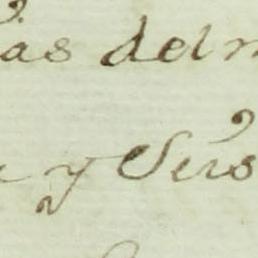 as del
y Seis